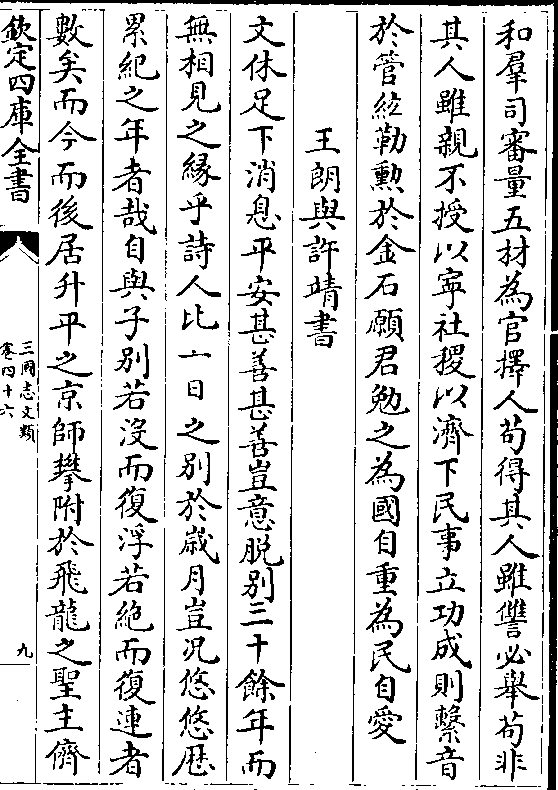 和羣司審量五材為官擇人茍得其人雖讐必舉茍非
其人雖親不授以寧社稷以濟下民事立功成則繫音
於管絃勒勲於金石願君勉之為國自重為民自愛
王朗與許靖書
文休足下消息平安甚善甚善豈意脱別三十餘年而
無相見之縁乎詩人比一日之別於歳月豈况悠悠歴
累紀之年者哉自與子別若沒而復浮若絶而復連者
數矣而今而後居升平之京師攀附於飛龍之聖主儕
欽定四庫全書
三國志文類
卷四十六
九